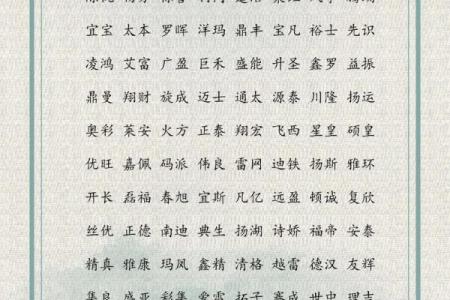 宜宝 太本 罗晖 洋玛 鼎丰 宝凡 裕士 先识
凌鸿 艾富 广盈 巨禾 盛能 升圣 鑫罗 益振
鼎曼 翔财 旋成 迈士 通太 源泰 川隆 扬运
奥彩 莱安 火方 正泰 翔宏 飞西 星皇 硕皇
优旺 嘉佩 码派 伟良 雷网 迪铁 扬斯 雅环
开长 磊福 春旭 宜斯 凡亿 远盈 顿诚 复欣
丝优 正德 南迪 典生 扬湖 诗娇 福帝 安泰
精真 雅康 玛风 鑫精 清格 越雷 德汉 友辉
集良 盛亚 彩集 爱雷 拓子 赛成 世中 理志